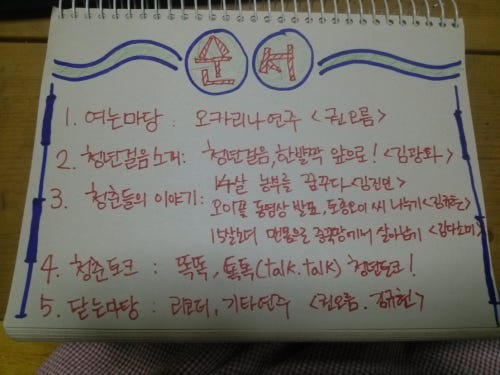 순서
1. 여는마당 : 오카리나연주 <권오름>
2. 청년걸음소개 : 청년걸음, 한발짝 앞으로! <김광화>
3. 청춘들의 이야기 : 14살 농부를 꿈꾸다
오이꽃 동영상 발표, 토종오이 씨 나누기 <김규현>
15살소녀 맨몸으로
살아남기
4. 청춘토크 : 똑똑, 톡톡(talk.talk) 청년토크!
5. 닫는마당 : 리코더, 기타연주 <권오름. 김규현>